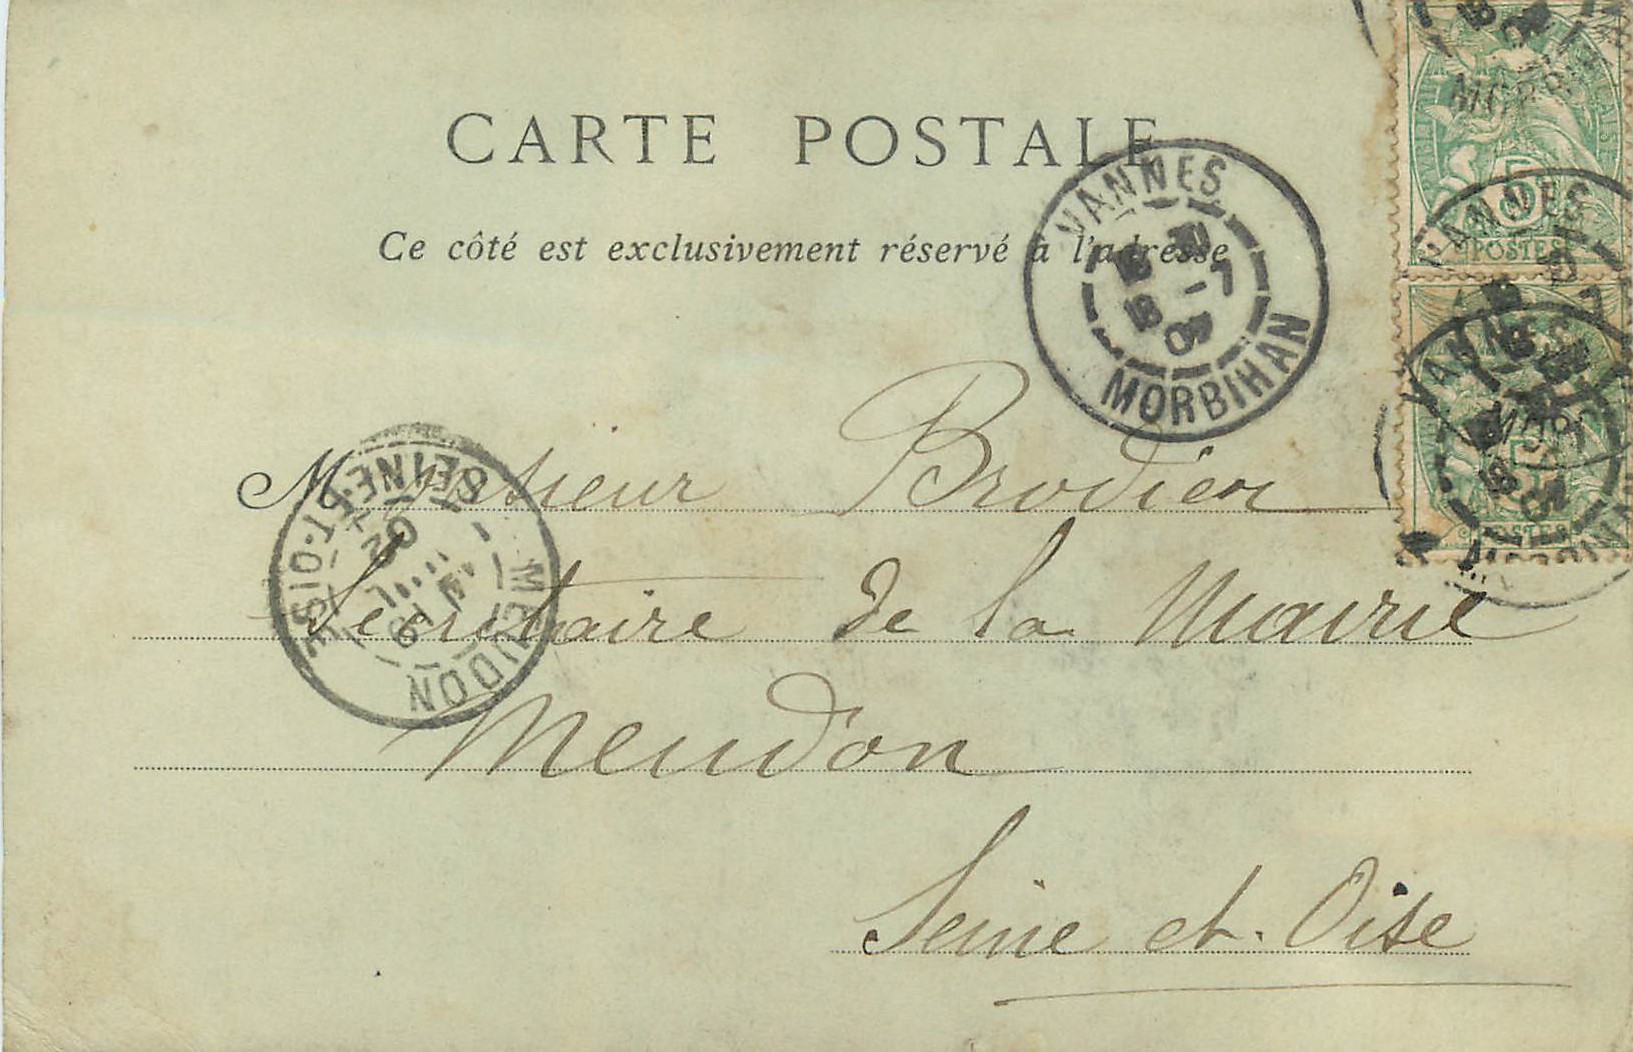 CARTE POSTALE
Ce côté est exclusivement réservé à l'adresse
VANNES
MORBIHAN
POSTES
5
VANNES
VANNES
Monsieur Brodier
Secrétaire de la Mairie
Meudon
Seine et Oise
MEUDON
SEINE-ET-OISE